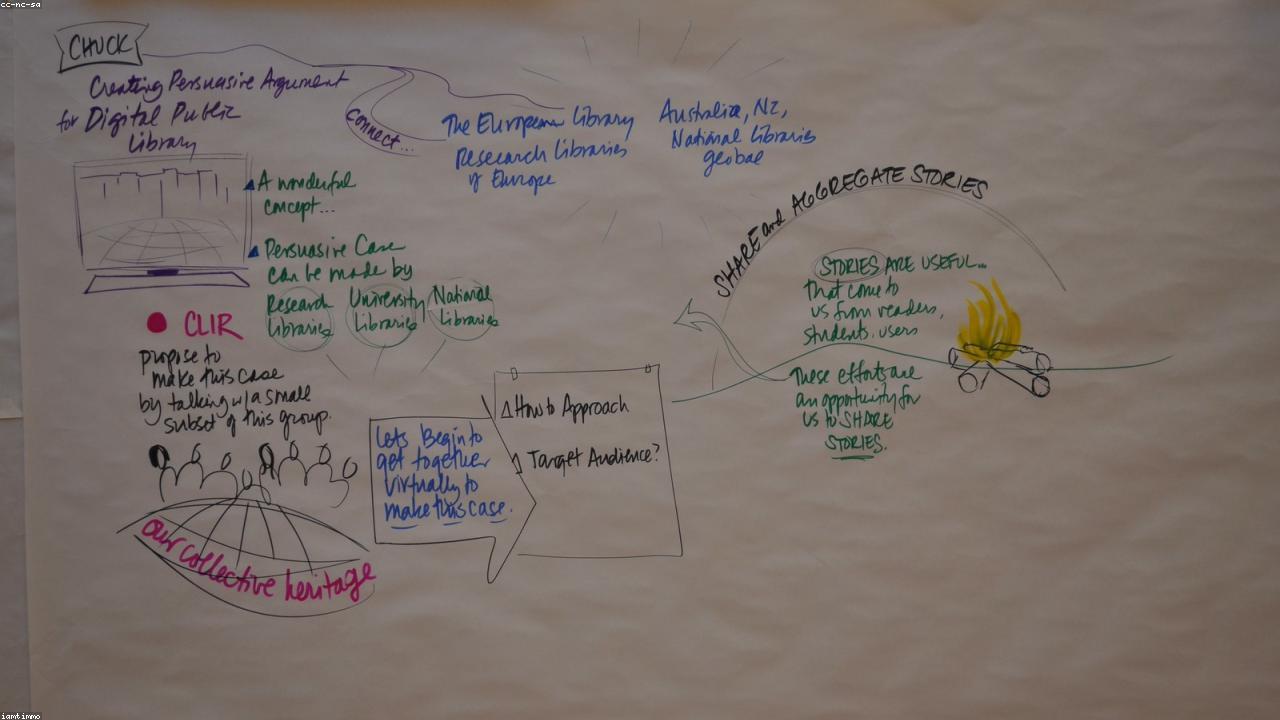 cc-nc-sa
CHUCK
Creating Persuasive Argument
for Digital Public
Library
Connect...
The European Library
Research Libraries
of Europe
Australia, NZ,
National Libraries
global
A wonderful
concept...
Persuasive Case
can be made by
Research
Libraries
University
Libraries
National
Libraries
CLIR
propose to
make this case
by talking w/a small
subset of this group.
our collective heritage
Lets Begin to
get together
virtually to
make this case.
How to Approach
Target Audience?
SHARE and AGGREGATE STORIES
STORIES ARE USEFUL...
that come to
us from readers,
students, users
These efforts are
an opportunity for
us to SHARE
STORIES.
iamtimmo